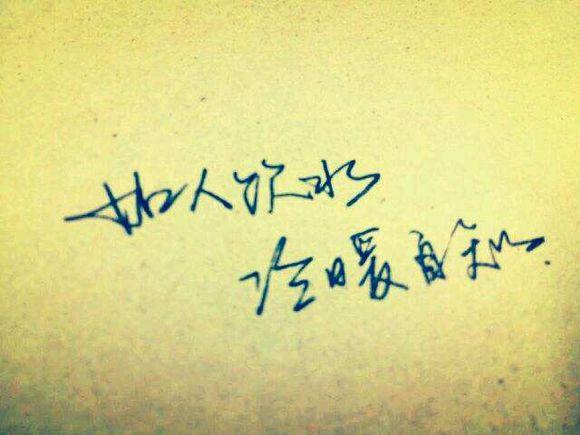 如人饮水
冷暖自知.